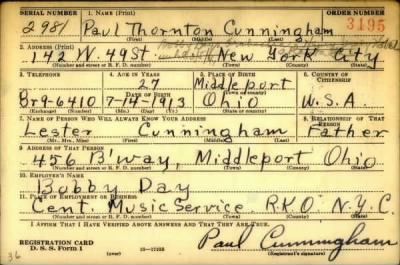 SERIAL NUMBER 1. NAME (Print) ORDER NUMBER
2981 Paul Thornton Cunningham 3195
(First) (Middle) (Last)
2. ADDRESS (Print)
142 W. 49 St. New York City
(Number and street or R. F. D. number) (Town) (County) (State)
3. TELEPHONE 4. AGE IN YEARS 5. PLACE OF BIRTH 6. COUNTRY OF CITIZENSHIP
27 Middleport
DATE OF BIRTH (Town or county)
Br9-6410 7-14-1913 Ohio U.S.A.
(Exchange) (Number) (Mo.) (Day) (Yr.) (State or country)
7. NAME OF PERSON WHO WILL ALWAYS KNOW YOUR ADDRESS 8. RELATIONSHIP OF THAT PERSON
Lester Cunningham Father
(Mr., Mrs., Miss) (First) (Middle) (Last)
9. ADDRESS OF THAT PERSON
456 B'way, Middleport Ohio
(Number and street or R. F. D. number) (Town) (County) (State)
10. EMPLOYER'S NAME
Bobby Day
11. PLACE OF EMPLOYMENT OR BUSINESS
Cent. Music Service R.K.O. N.Y.C.
(Number and street or R. F. D. number) (Town) (County) (State)
I AFFIRM THAT I HAVE VERIFIED ABOVE ANSWERS AND THAT THEY ARE TRUE.
REGISTRATION CARD
D. S. S. Form 1 (over) 16-17105 Paul Cunningham
(Registrant's signature)
36